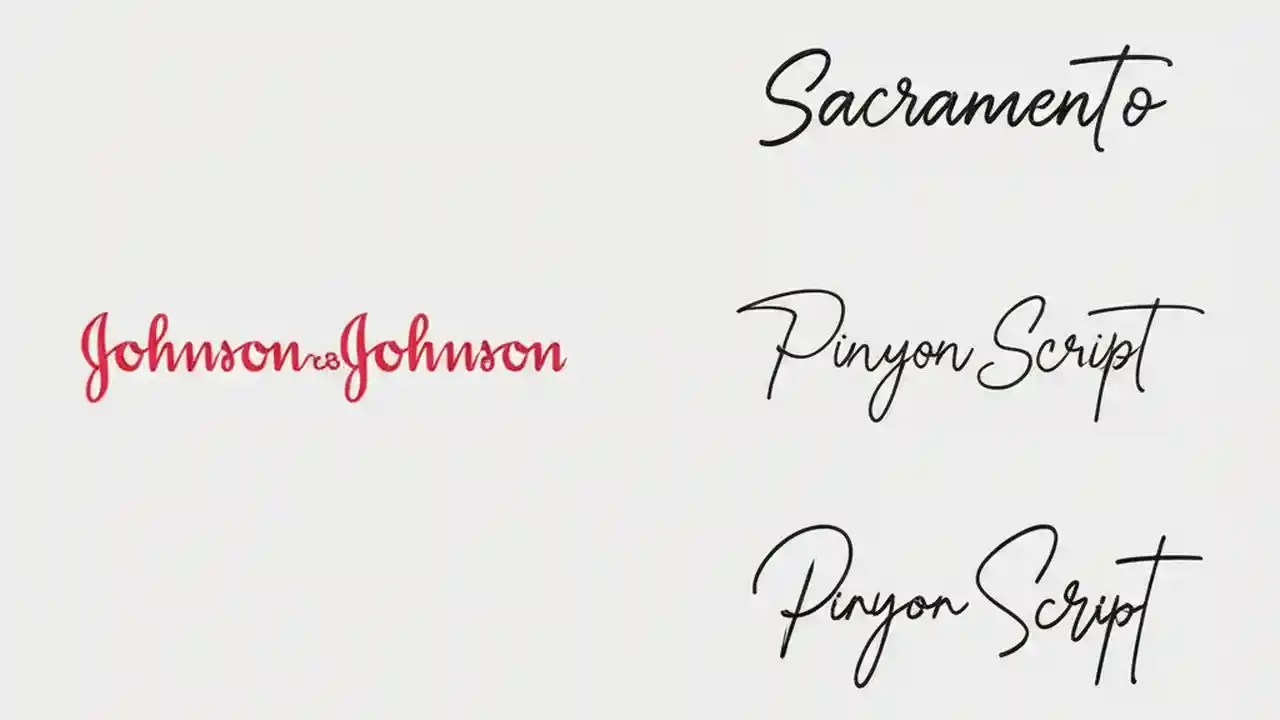 Sacramento
Johnson & Johnson
Pinyon Script
Pinyon Script